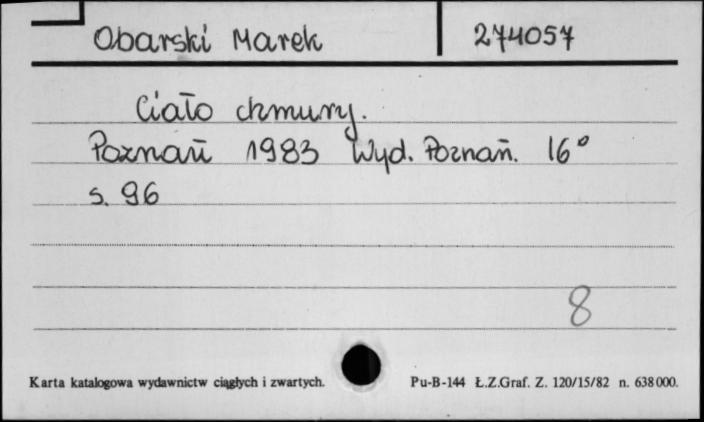 Obarski Marek 274057
Ciało chmury.
Poznań 1983 Wyd. Poznań. 16°
s. 96
8
Karta katalogowa wydawnictw ciągłych i zwartych. Pu-B-144 Ł.Z.Graf. Z. 120/15/82 n. 638000.